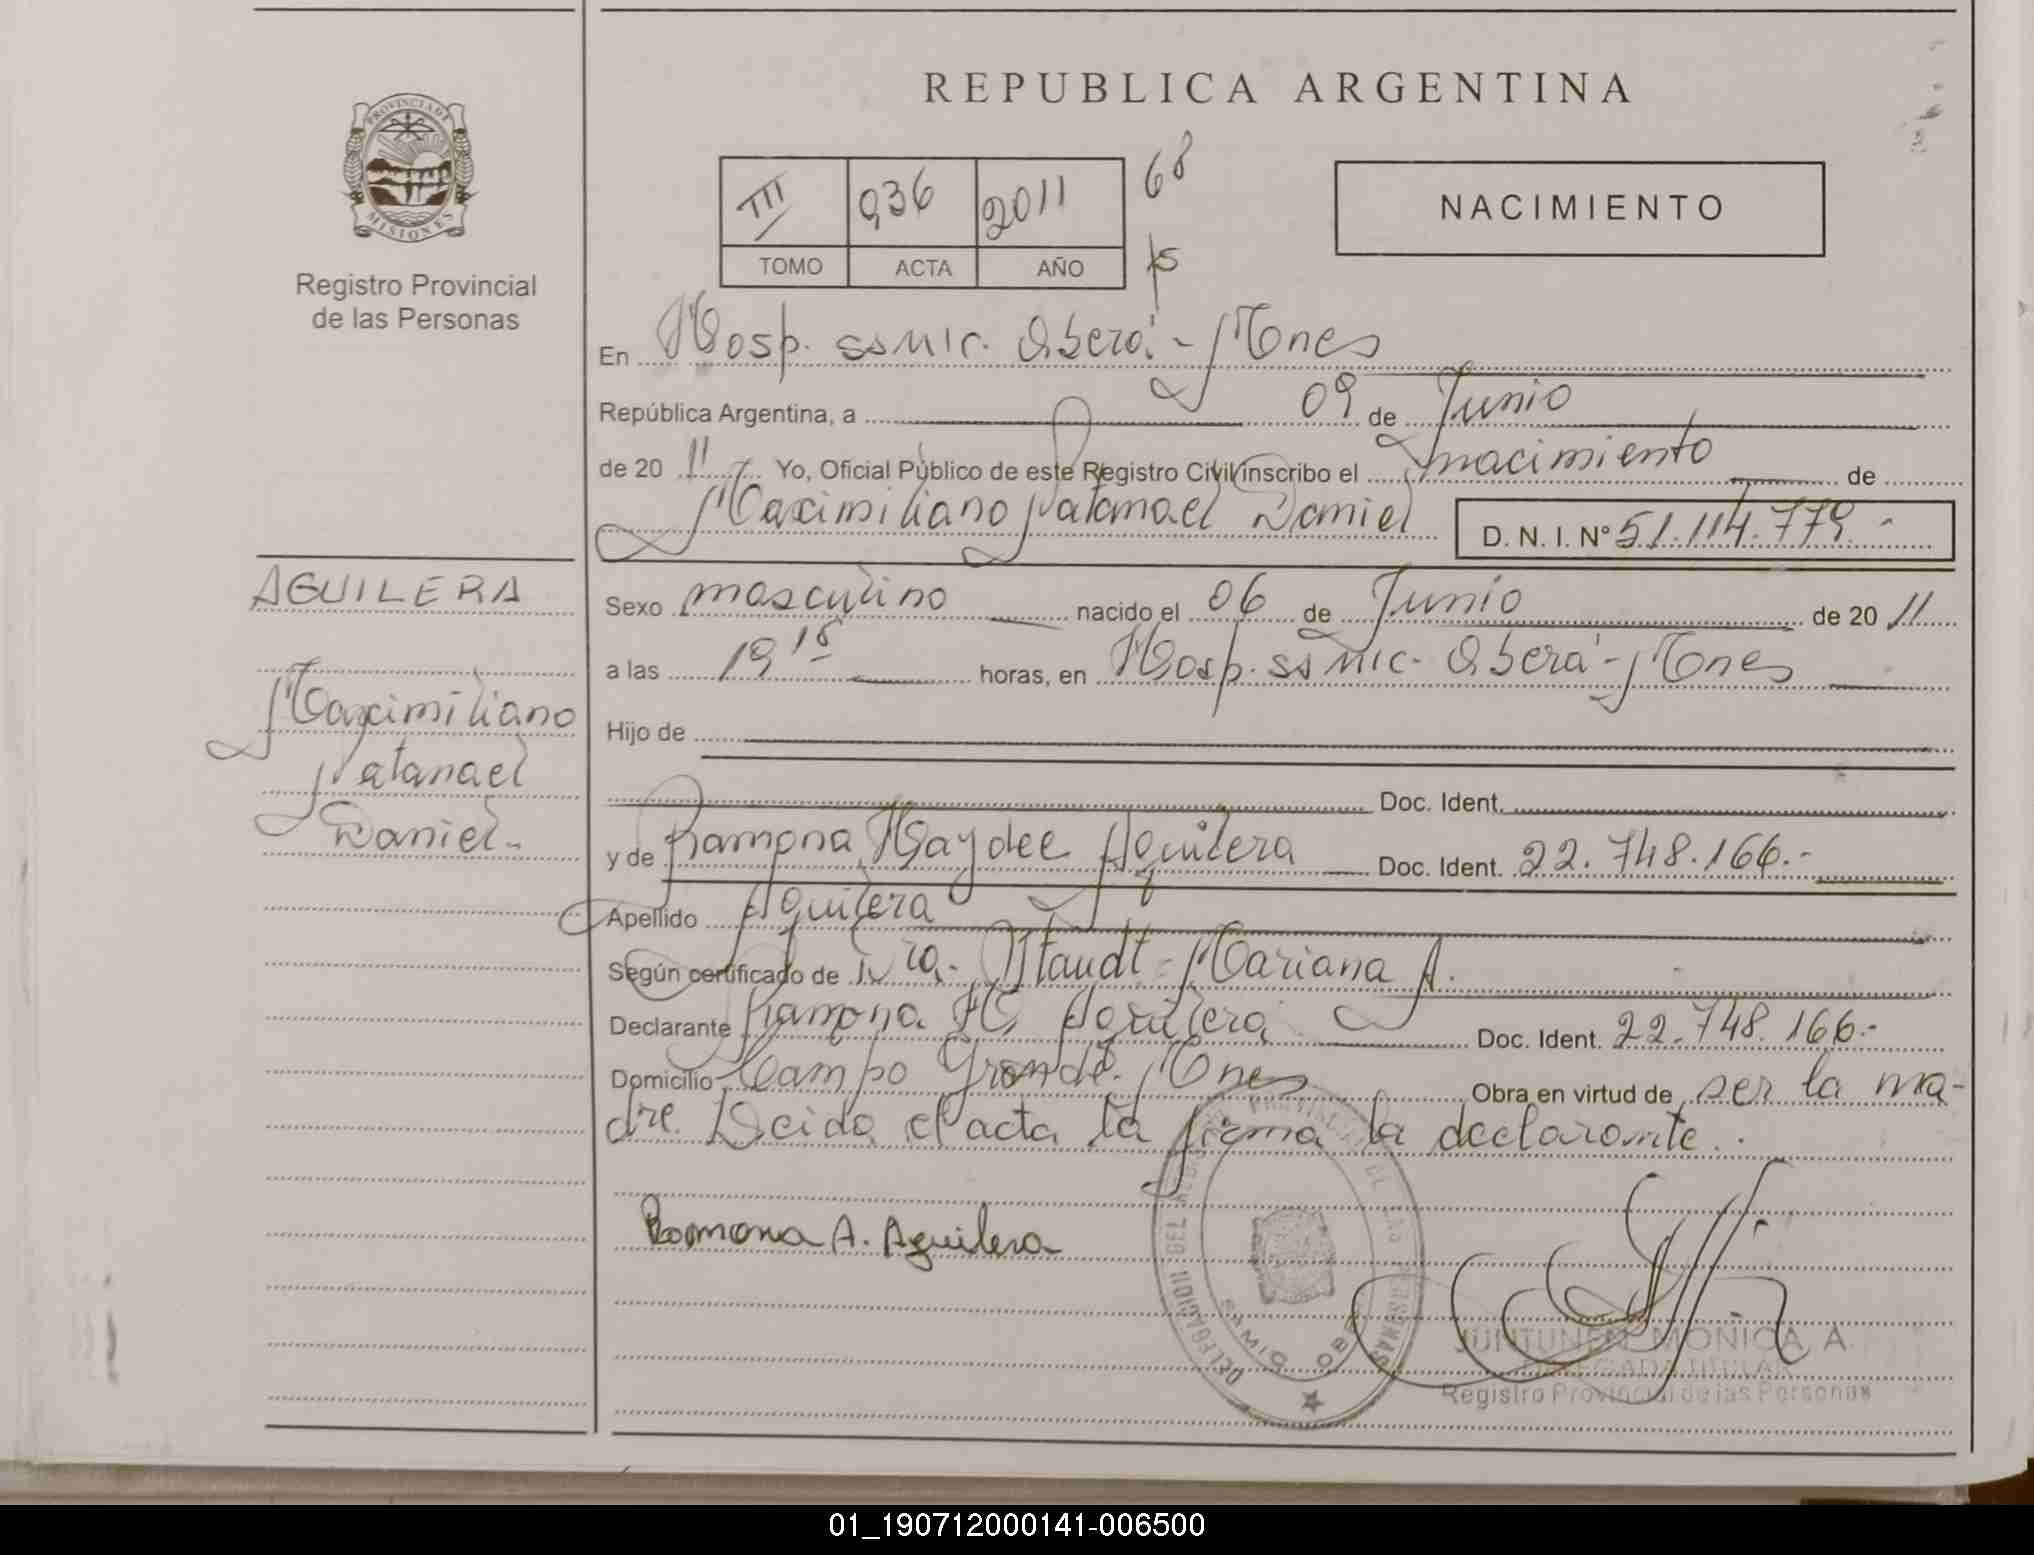 REPUBLICA ARGENTINA
PROVINCIA DE
MISIONES
Registro Provincial
de las Personas
III 936 2011 68
TOMO ACTA AÑO fs
NACIMIENTO
En Hosp. SSMIC. Oberá - Mnes
República Argentina, a 09 de Junio
de 20 11 Yo, Oficial Público de este Registro Civil inscribo el nacimiento de
Maximiliano Natanael Daniel D. N. I. Nº 51.114.779.-
AGUILERA
Maximiliano
Natanael
Daniel.-
Sexo masculino nacido el 06 de Junio de 20 11
a las 19 18 horas, en Hosp. SSMIC. Oberá - Mnes
Hijo de
Doc. Ident.
y de Ramona Haydee Aguilera Doc. Ident. 22.748.166.-
Apellido Aguilera
Según certificado de Dra. Staudt - Mariana A.
Declarante Ramona H. Aguilera Doc. Ident. 22.748.166.-
Domicilio Campo Grande. Mnes Obra en virtud de ser la ma-
dre. Leida el acta la firma la declarante.
Ramona A. Aguilera
JUNTUNEN MONICA A.
DELEGADA TITULAR
Registro Provincial de las Personas
01_190712000141-006500